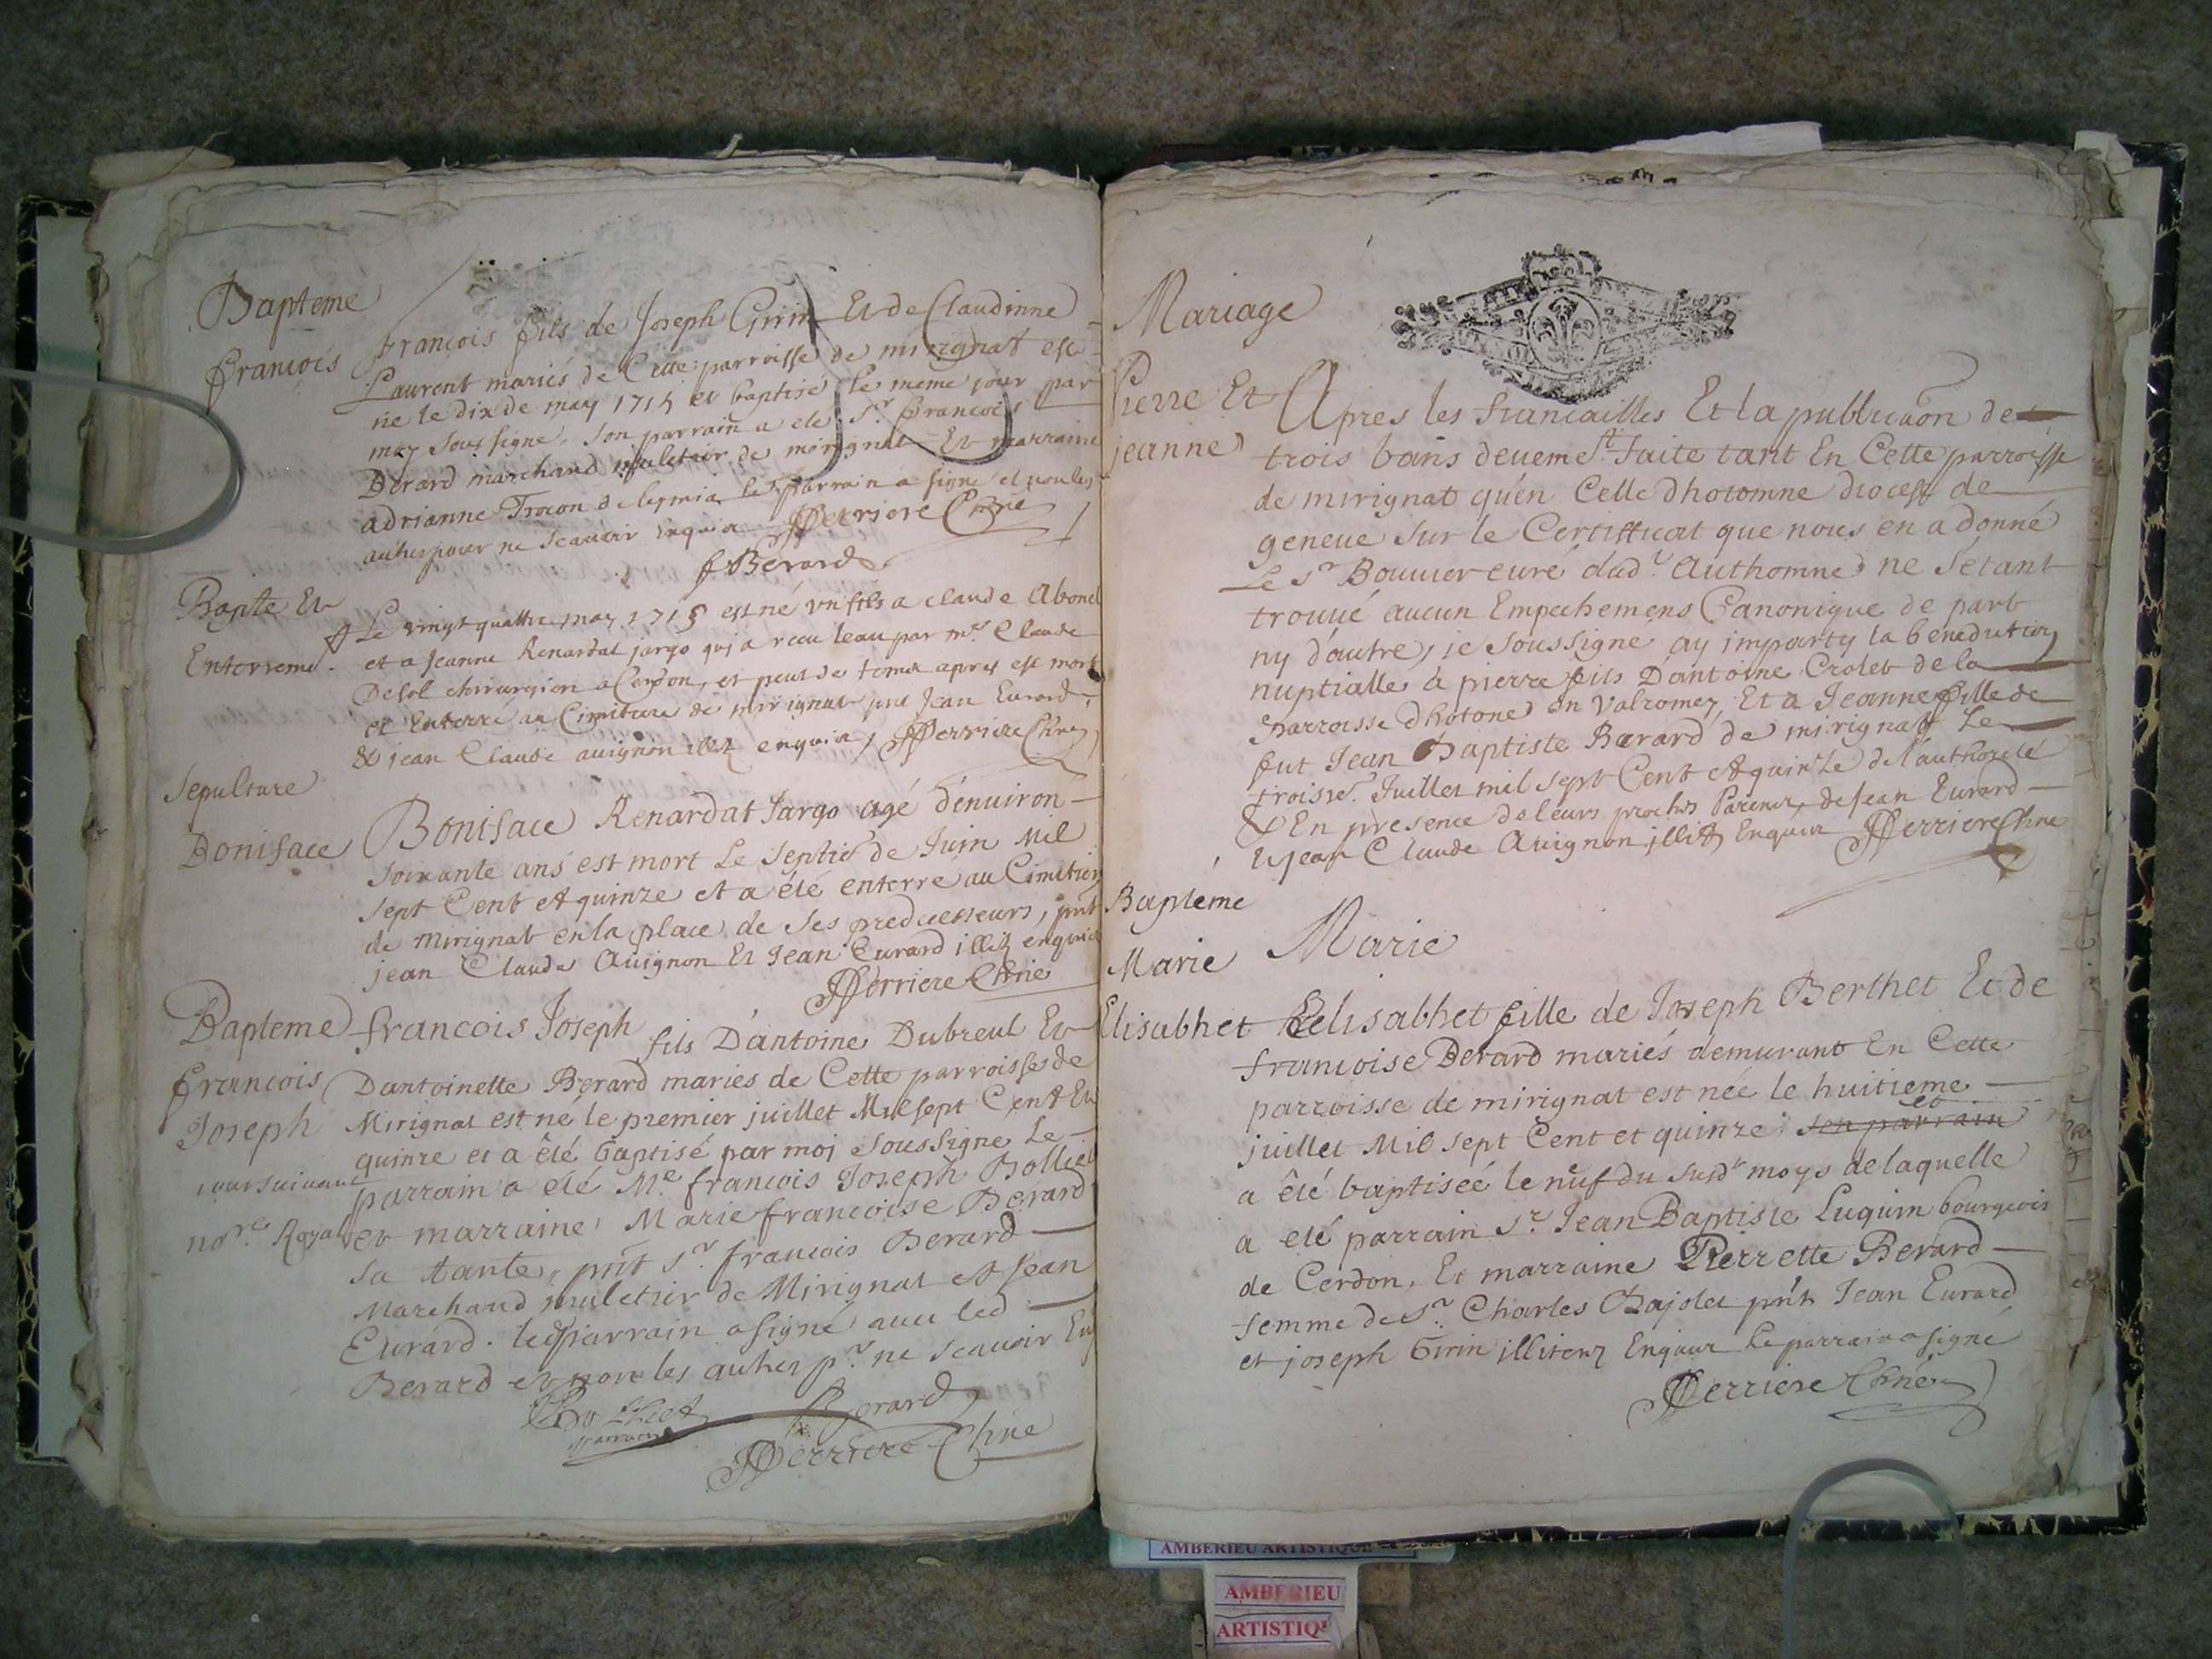 Bapteme
François
François fils de Joseph Girin Et de Claudinne
Laurent mariés de Cette parroisse de mirignat est
né le dix de may 1715 et baptisé le meme jour par
moy soussigné, son parrain a eté Sr François
Berard marchand muletier de mirignat Et marraine
adrianne le parrain a signé et non les
autres pour ne scavoir enquis JPerriere Curé
f Berard
Bapte Et
Enterreme.
Le vingt quattre may 1715 est né un fils a claude Abond
et a Jeanne Renardat jargo qui a receu leau par mre Claude
Desol chirurgien a Cerdon, et peut de tems apres est mort
et Enterré au Cimitiere de mirignat pnt Jean Eurard
& jean Claude auignon illit enquis, JPerriere Curé
Sepulture
Boniface
Boniface Renardat Jargo agé d'enuiron
soixante ans est mort Le septie de Juin Mil
sept Cent et quinze et a été enterré au Cimitiere
de Mirignat en la place de ses predecesseurs, pnt
jean Claude Auignon Et Jean Eurard illit enquis
JPerriere Curé
Bapteme
François
Joseph
francois Joseph fils D'antoine Dubreul Et
Dantoinette Berard mariés de Cette parroisse de
Mirignat est né le premier juillet Mil sept Cent Et
quinze et a êté baptisé par moi soussigné Le
jour suivant parrain a eté Me. francois Joseph Bolliet
nore. Royal et marraine Marie francoise Berard
sa tante, pnt Sr. francois Berard
Marchand muletier de Mirignat et Jean
Eurard. led parrain a signé avec led
Berard et non les autres pr ne scavoir Enq
Bolliet
parrain
Berard
JPerriere Curé
Mariage
Pierre Et
jeanne
Apres les fiancailles Et la publicaon des
trois bans deuemet faite tant En Cette parroisse
de mirignat qu'en Celle dhotomne diocese de
geneue sur le Certifficat que nous en a donné
Le Sr Bouuier curé dud. Authomne ne s'etant
trouué aucun Empechemens Canonique de part
ny d'autre, je soussigné ay imparty la benediction
nuptialle à pierre fils D'antoine Crolet de la
Parroisse dhotone en Valromey, Et a Jeanne fille de
fut Jean Baptiste Berard de mirignat Le
troisse. Juillet mil sept Cent et quinze de l'authorité
& En presence de leurs proches Parens, de Jean Eurard
Et Jean Claude Auignon illit Enquis JPerriere Curé
Bapteme
Marie
Elisabhet
Marie
Elisabhet fille de Joseph Berthet Et de
francoise Berard mariés demurant En Cette
parroisse de mirignat est née le huitieme
juillet Mil sept Cent et quinze. son parrain et
a êté baptisée le nuf du susdt moys de laquelle
a eté parrain Sr. Jean Baptiste Luquin bourgeois
de Cerdon, Et marraine Pierrette Berard
femme de Sr. Charles Bajolet pnt Jean Eurard
et joseph Girin illiterz Enquis Le parrain a signé
JPerriere Curé
AMBERIEU ARTISTIQUE
AMBERIEU
ARTISTIQU